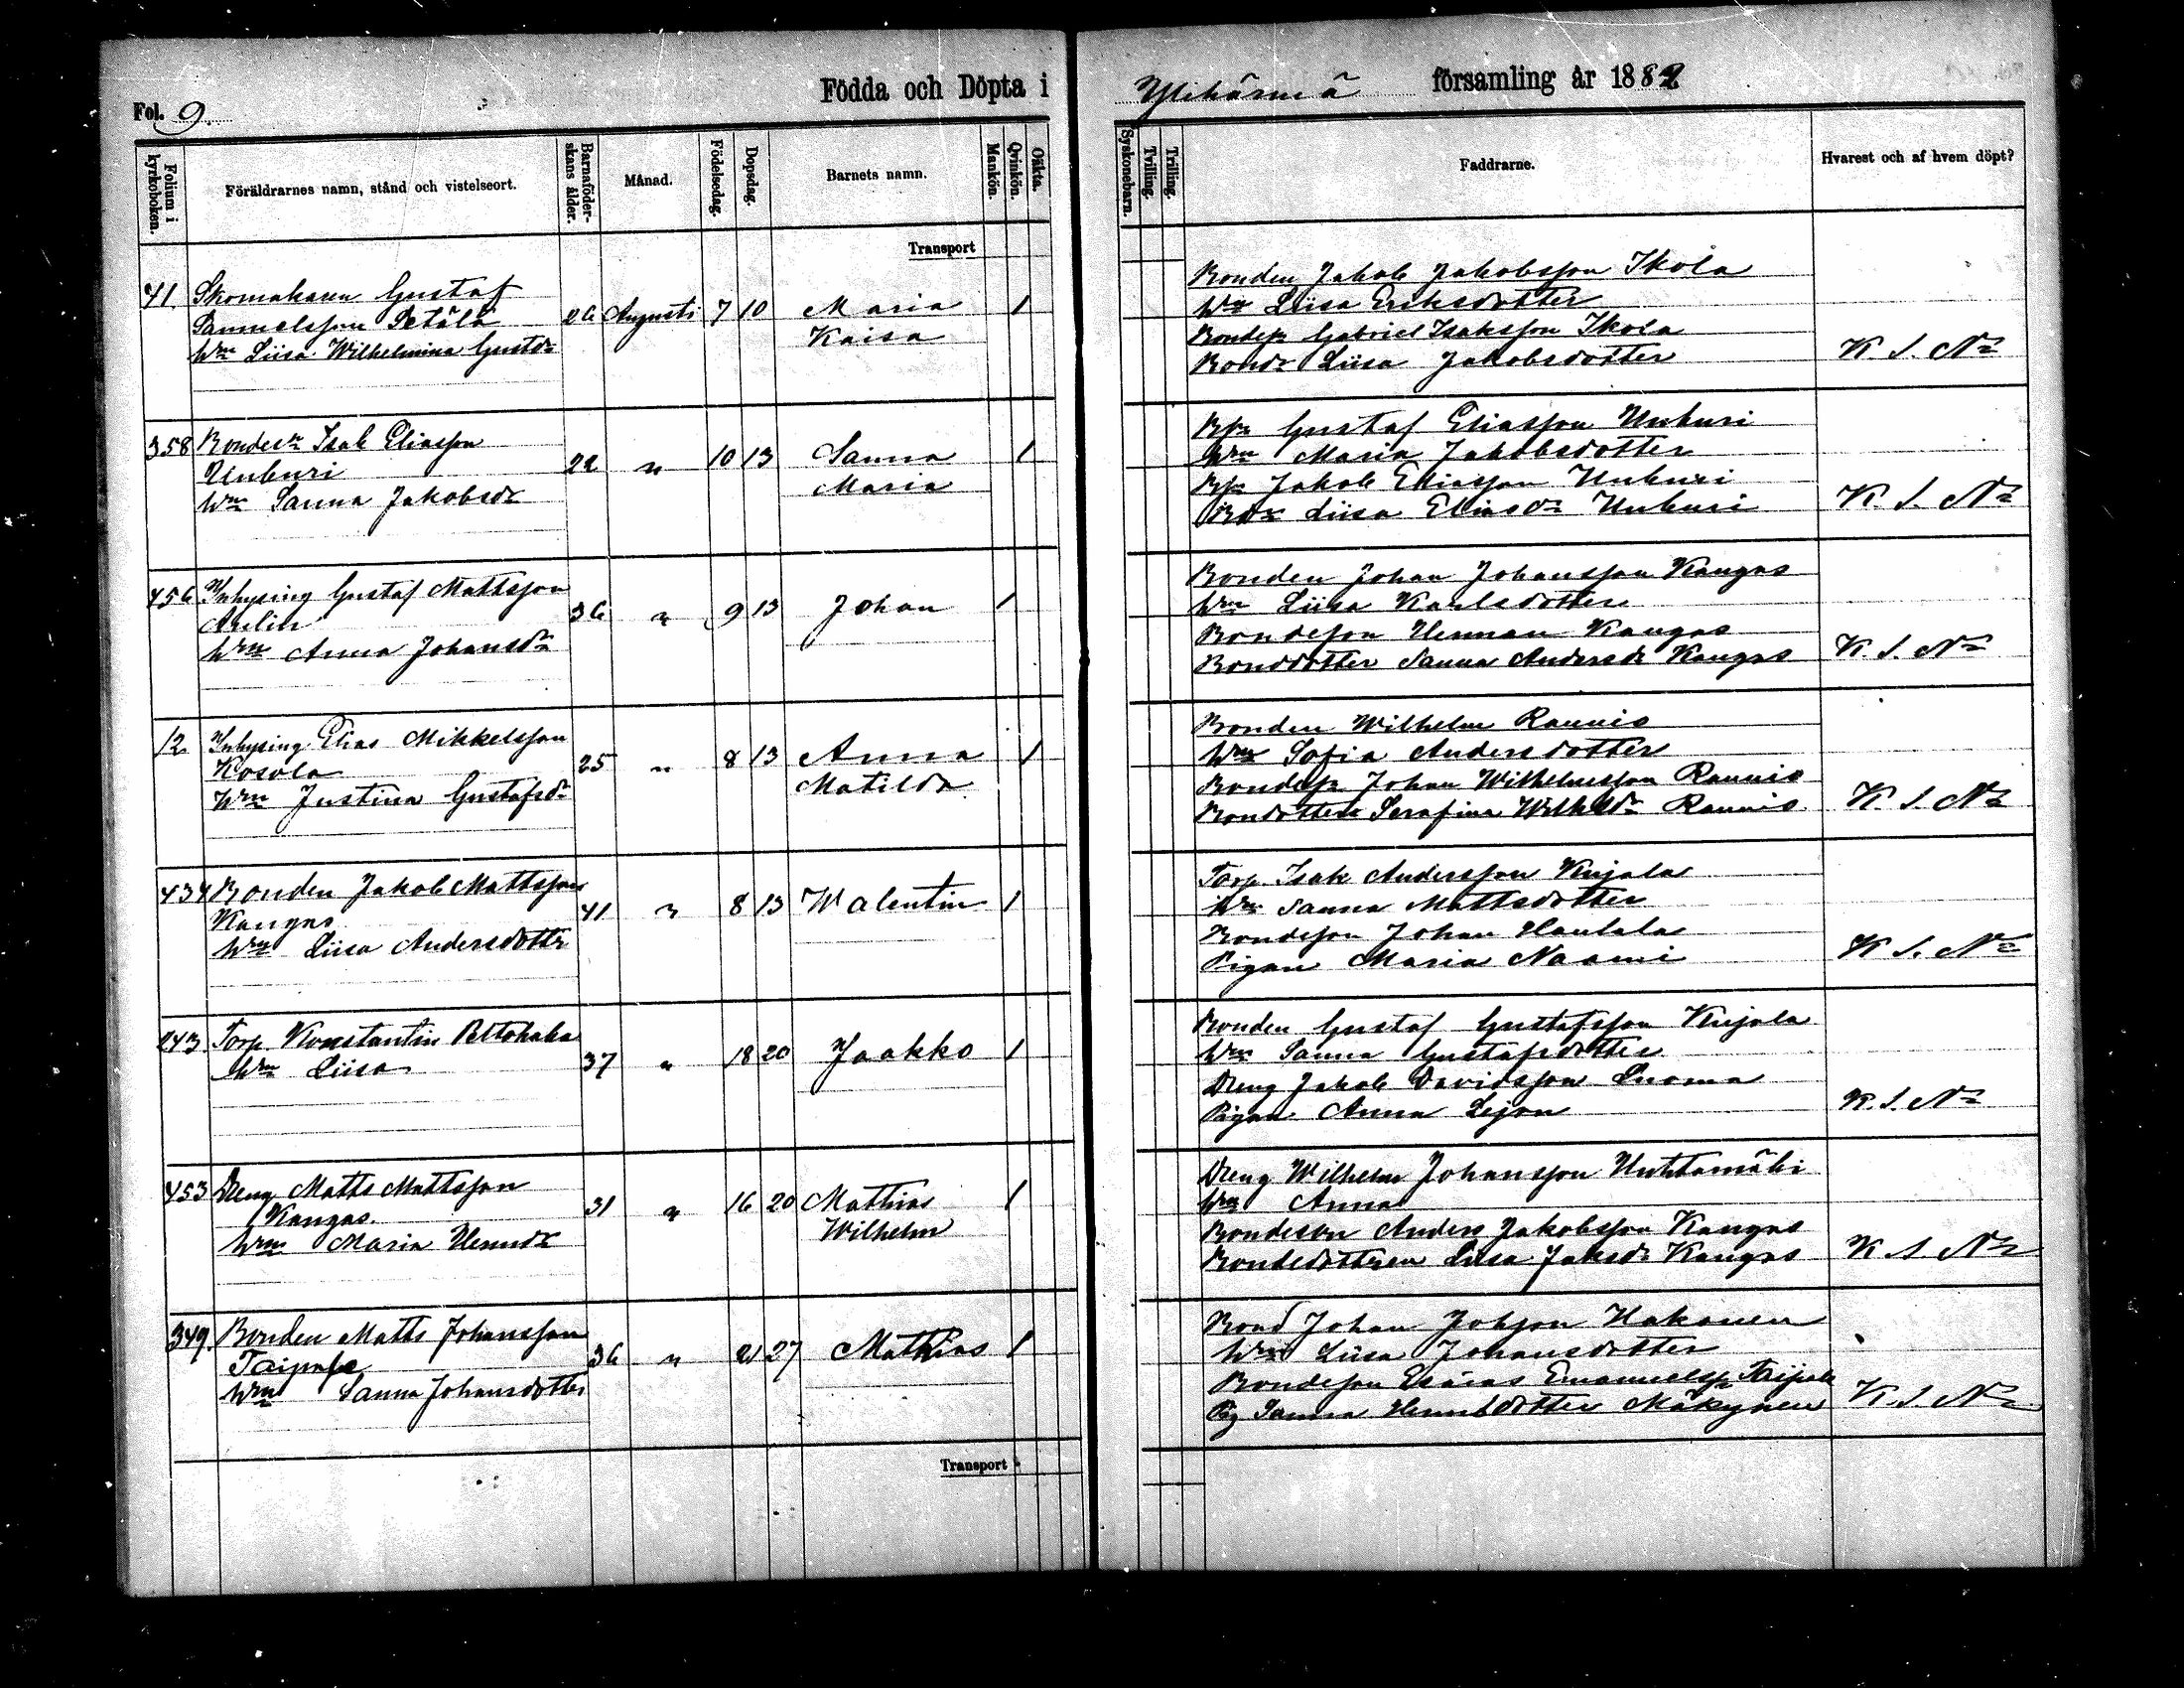 Fol. 9.
Födda och Döpta i
Ylihärmä församling år 1882
Folium i kyrkoboken.
Föräldrarnes namn, stånd och vistelseort.
Barnaföderskans ålder.
Månad.
Födelsedag.
Dopsdag.
Barnets namn.
Mankön.
Qvinkön.
Oäkta.
Syskonebarn.
Tvilling.
Trilling.
Faddrarne.
Hvarest och af hvem döpt?
Transport
41 Skomakaren Gustaf
Samuelsson Petälä 26 Augusti 7 10 Maria 1
Hru Liisa Wilhelmina Gustdr Kaisa
Bonden Jakob Jakobsson Ikola
Hru Liisa Eriksdotter
Bondesn Gabriel Isaksson Ikola
Bondr Liisa Jakobsdotter K S. Nr
358 Bondesn Isak Eliasson
Unkuri 22 " 10 13 Sanna 1
Hru Sanna Jakobsdr Maria
Bsn Gustaf Eliasson Unkuri
Hru Maria Jakobsdotter
Bsn Jakob Eliasson Unkuri
Bdr Liisa Eliasdr Unkuri K. S. Nr
456 Inhysing Gustaf Mattsson
36 " 9 13 Johan 1
Hru Anna Johansdr
Bonden Johan Johansson Kangas
Hru Liisa Karlsdotter
Bondeson Herman Kangas
Bonddotter Sanna Andersdr Kangas K. S. Nr
12. Inhysing Elias Mikkelsson
Kosola 25 " 8 13 Anna 1
Hru Justina Gustafsdr Matilda
Bonden Wilhelm Rannis
Hru Sofia Andersdotter
Bondesn Johan Wilhelmsson Rannis
Bondottern Serafina Wilhelsdr Rannis K. S. Nr
434 Bonden Jakob Mattsson
Kangas 41 " 8 13 Walentin 1
Hru Liisa Andersdottr
Torp. Isak Andersson Kujala
Hru Sanna Mattsdotter
Bondeson Johan Hautala
Pigan Maria Naomi K S. Nr
243. Torp. Konstantin Peltohaka
Hru Liisa 37 " 18 20 Jaakko 1
Bonden Gustaf Gustafsson Kujala
Hru Sanna Gustafsdotter
Dreng Jakob Davidsson Luoma
Pigan Anna Lejon K. S. Nr
453 Dreng Matts Mattsson
Kangas. 31 " 16 20 Mathias 1
Hru Maria Henrdr Wilhelm
Dreng Wilhelm Johansson Huhtamäki
Hru Anna
Bondeson Anders Jakobsson Kangas
Bondedottren Liisa Jaksdr Kangas K S Nr
349. Bonden Matts Johansson
Taipale 36 " 21 27 Mathias 1
Hru Sanna Johansdotter
Bond Johan Johsson Hakanen
Hru Liisa Johansdotter
Bondeson Esaias Emanuelsn Taipale
Pig Sanna Henriksdotter Mäkynen K. S. Nr
Transport